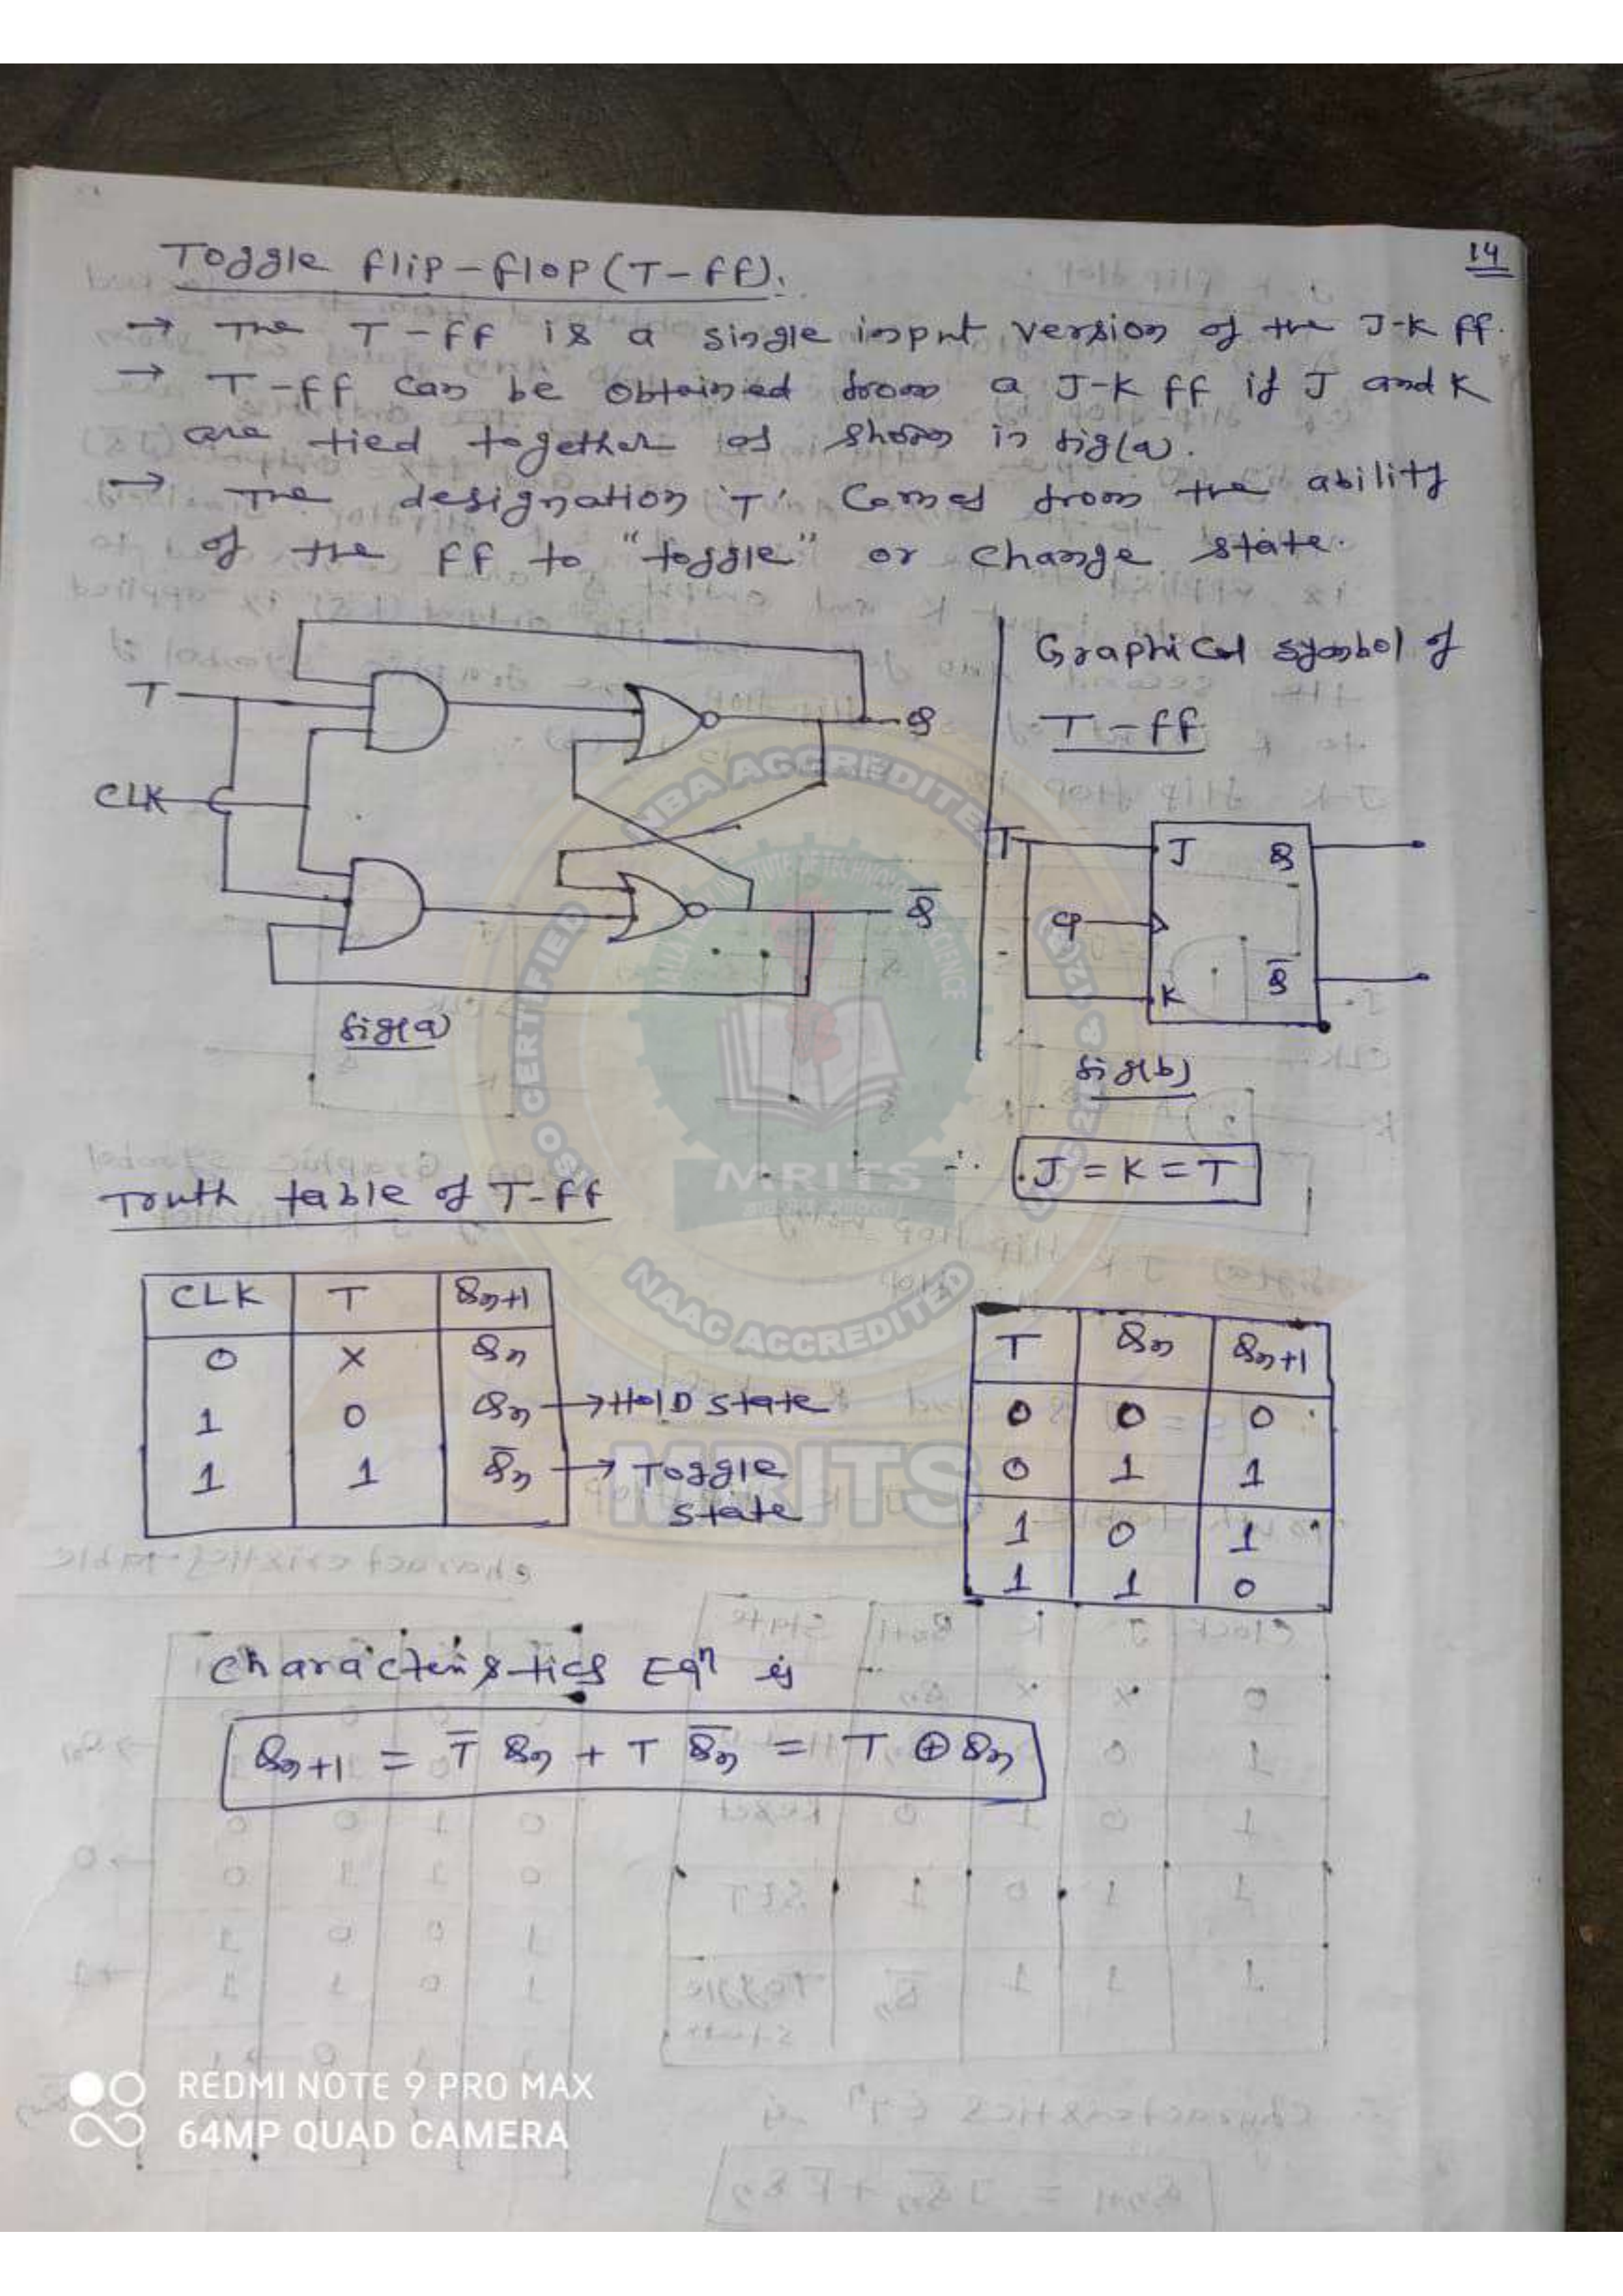 14
Toggle flip-flop (T-ff).
→ The T-ff is a single input version of the J-K ff.
→ T-ff can be obtained from a J-K ff if J and K
are tied together as shown in fig(a).
→ The designation 'T' comes from the ability
of the ff to "toggle" or change state.
T
CLK
Q
Q̅
fig(a)
Graphical symbol of
T-ff
T
J
Q
CP
K
Q̅
fig(b)
∴ J = K = T
Truth table of T-ff
CLK T Qn+1
0 X Qn
1 0 Qn → Hold state
1 1 Q̅n → Toggle
state
T Qn Qn+1
0 0 0
0 1 1
1 0 1
1 1 0
Characteristics Eqn is
Qn+1 = T̅ Qn + T Q̅n = T ⊕ Qn
NBA ACCREDITED
CERTIFIED
NAAC ACCREDITED
MRITS
MRITS
REDMI NOTE 9 PRO MAX
64MP QUAD CAMERA